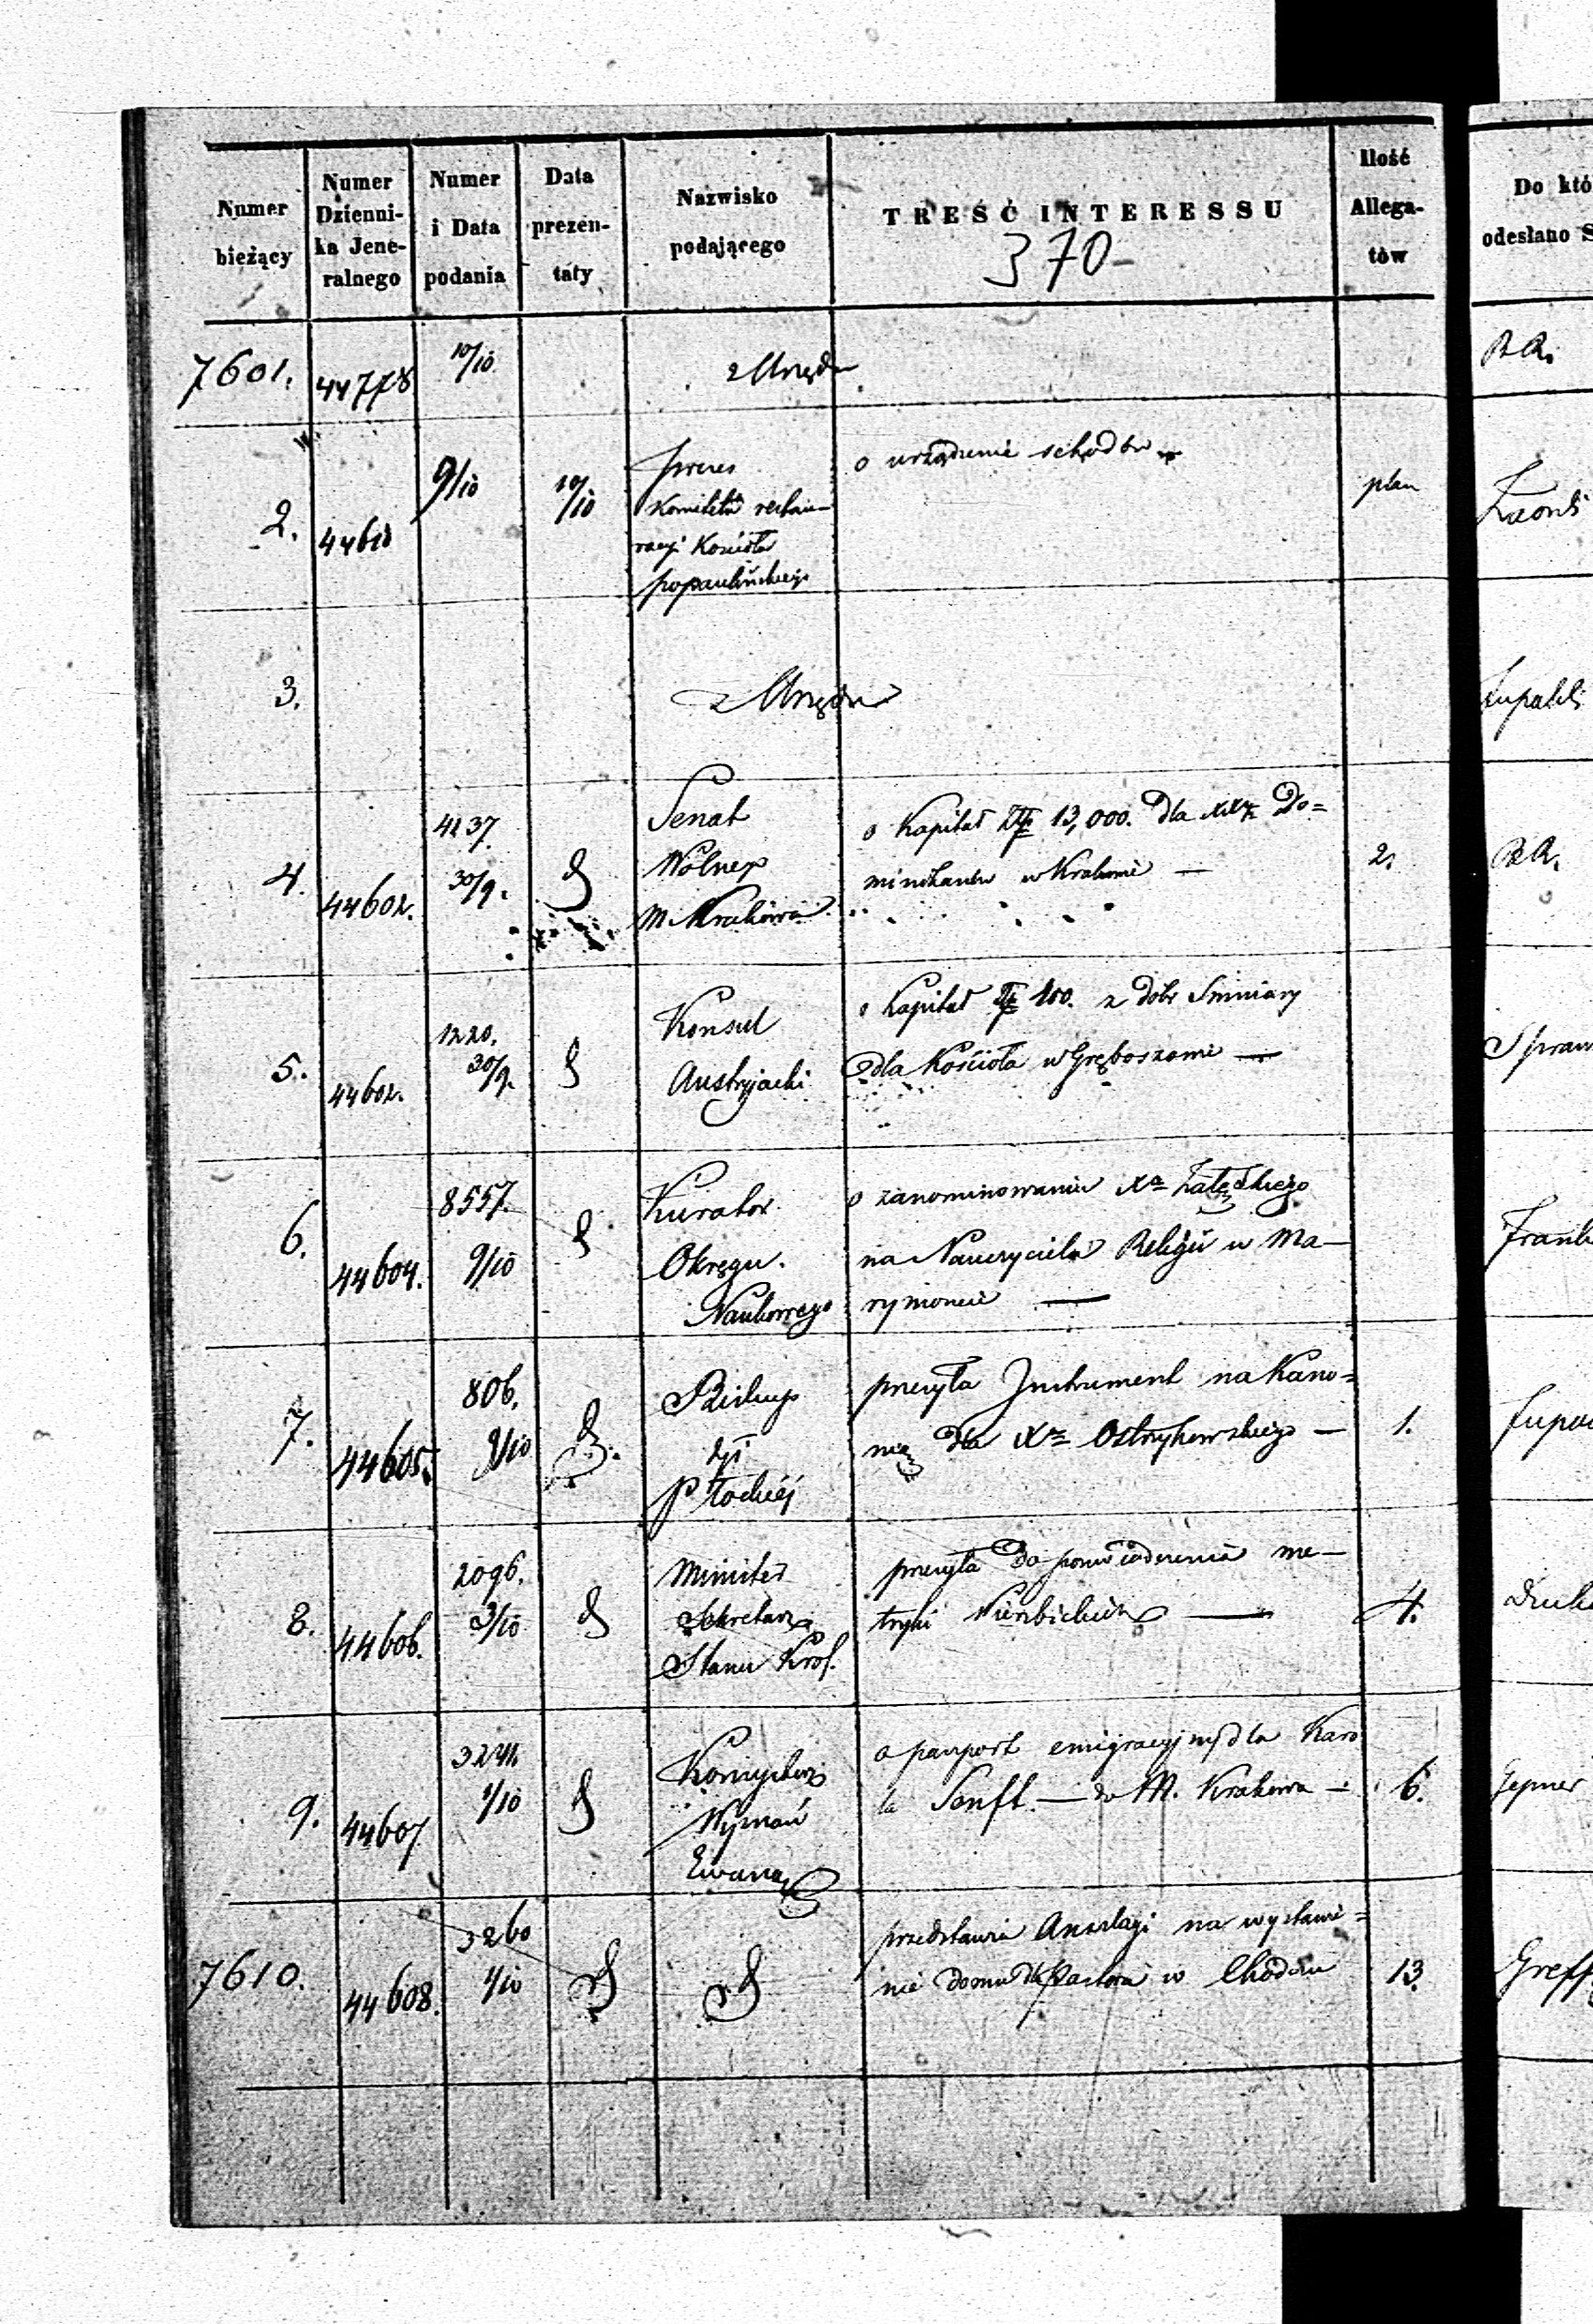 Numer bieżący
Numer Dzienni-ka Jene-ralnego
Numer i Data podania
Data prezen-taty
Nazwisko podającego
TREŚĆ INTERESSU
370
Ilość Allega-tów
Do któ
odesłano S
7601. 44778 10/10 z Urzędu RR.
2. 44610 9/10 10/10
Prezes
Komitetu restau-
racyi Kościoła
popaulińskiego
o urządzenie schodów
plan
3. z Urzędu
4. 44602. 4237. 30/9.
Senat
Wolnego
M. Krakowa
o Kapitał Złp 13,000. dla XXży Do=
minikanów w Krakowie —
2.
RR.
5. 44602. 1220. 30/9.
Konsul
Austryjacki
o Kapitał 100. z dobr
dla Kościoła w Gręboszowie —
Spraw
6. 44604. 8557. 9/10
Kurator
Okręgu
Naukowego
o zanominowanie Xa Załęskiego
na Nauczyciela Religii w Ma—
rymoncie —
7. 44605. 806. 9/10
Biskup
Dyi
Płockiéj
przesyła Instrument na Kano=
nię dla Xa Ostrykowskiego —
1.
8. 44606. 2096. 3/10
Minister
Sekretarz
Stanu Król.
przesyła do poświadczenia me—
tryki —
4.
9. 44607 3241. 1/10
Konsystorz
Wyznań
Ewang
o paszport emigracyjny dla Karo
la Senft. — do M. Krakowa —
6.
7610. 44608. 3260 1/10
przedstawia Anszlagi na wystawie=
nie domu dla Pastora w Chodczu
13.